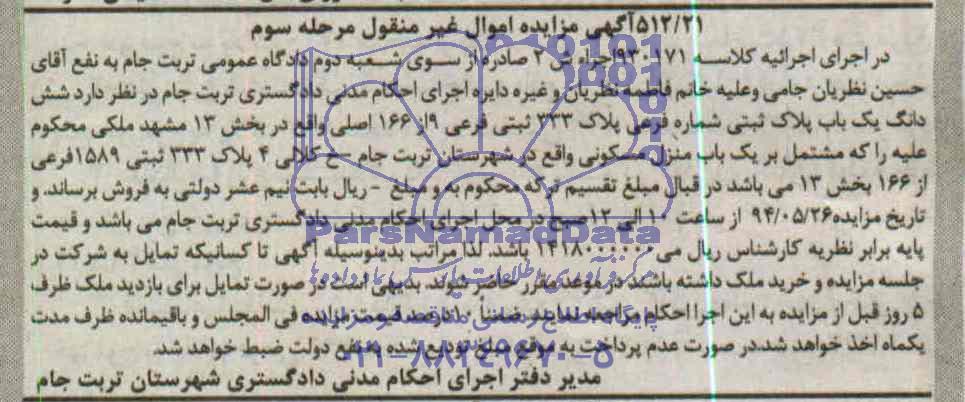 ۵۱۲/۲۱آگهی مزایده اموال غیر منقول مرحله سوم
در اجرای اجرائیه کلاسه ۹۳۰۱۷۱اجراء ش ۲ صادره از سوی شعبه دوم دادگاه عمومی تربت جام به نفع آقای
حسین نظریان جامی وعلیه خانم فاطمه نظریان و غیره دایره اجرای احکام مدنی دادگستری تربت جام در نظر دارد شش
دانگ یک باب پلاک ثبتی شماره فرعی پلاک ۳۳۳ ثبتی فرعی ۹از ۱۶۶ اصلی واقع در بخش ۱۳ مشهد ملکی محکوم
علیه را که مشتمل بر یک باب منزل مسکونی واقع در شهرستان تربت جام –خ کلالی ۴ پلاک ۳۳۳ ثبتی ۱۵۸۹فرعی
از ۱۶۶ بخش ۱۳ می باشد در قبال مبلغ تقسیم ترکه محکوم به و مبلغ - ریال بابت نیم عشر دولتی به فروش برساند. و
تاریخ مزایده۹۴/۰۵/۲۶ از ساعت ۱۰ الی ۱۲صبح در محل اجرای احکام مدنی دادگستری تربت جام می باشد و قیمت
پایه برابر نظریه کارشناس ریال می باشد. لذا مراتب بدینوسیله آگهی تا کسانیکه تمایل به شرکت در
جلسه مزایده و خرید ملک داشته باشند در موعد مقرر حاضر شوند. بدیهی است در صورت تمایل برای بازدید ملک ظرف
۵ روز قبل از مزایده به این اجرا احکام مراجعه نمایند. ضمناً ۱۰درصد قیمت مزایده فی المجلس و باقیمانده ظرف مدت
یکماه اخذ خواهد شد.در صورت عدم پرداخت به موقع مبلغ تودیع شده به نفع دولت ضبط خواهد شد.
مدیر دفتر اجرای احکام مدنی دادگستری شهرستان تربت جام
ParsNamadData
مرکز فرآوری اطلاعات پارس نماد داده ها
۰۲۱-۸۸۳۴۹۶۷۰-۵